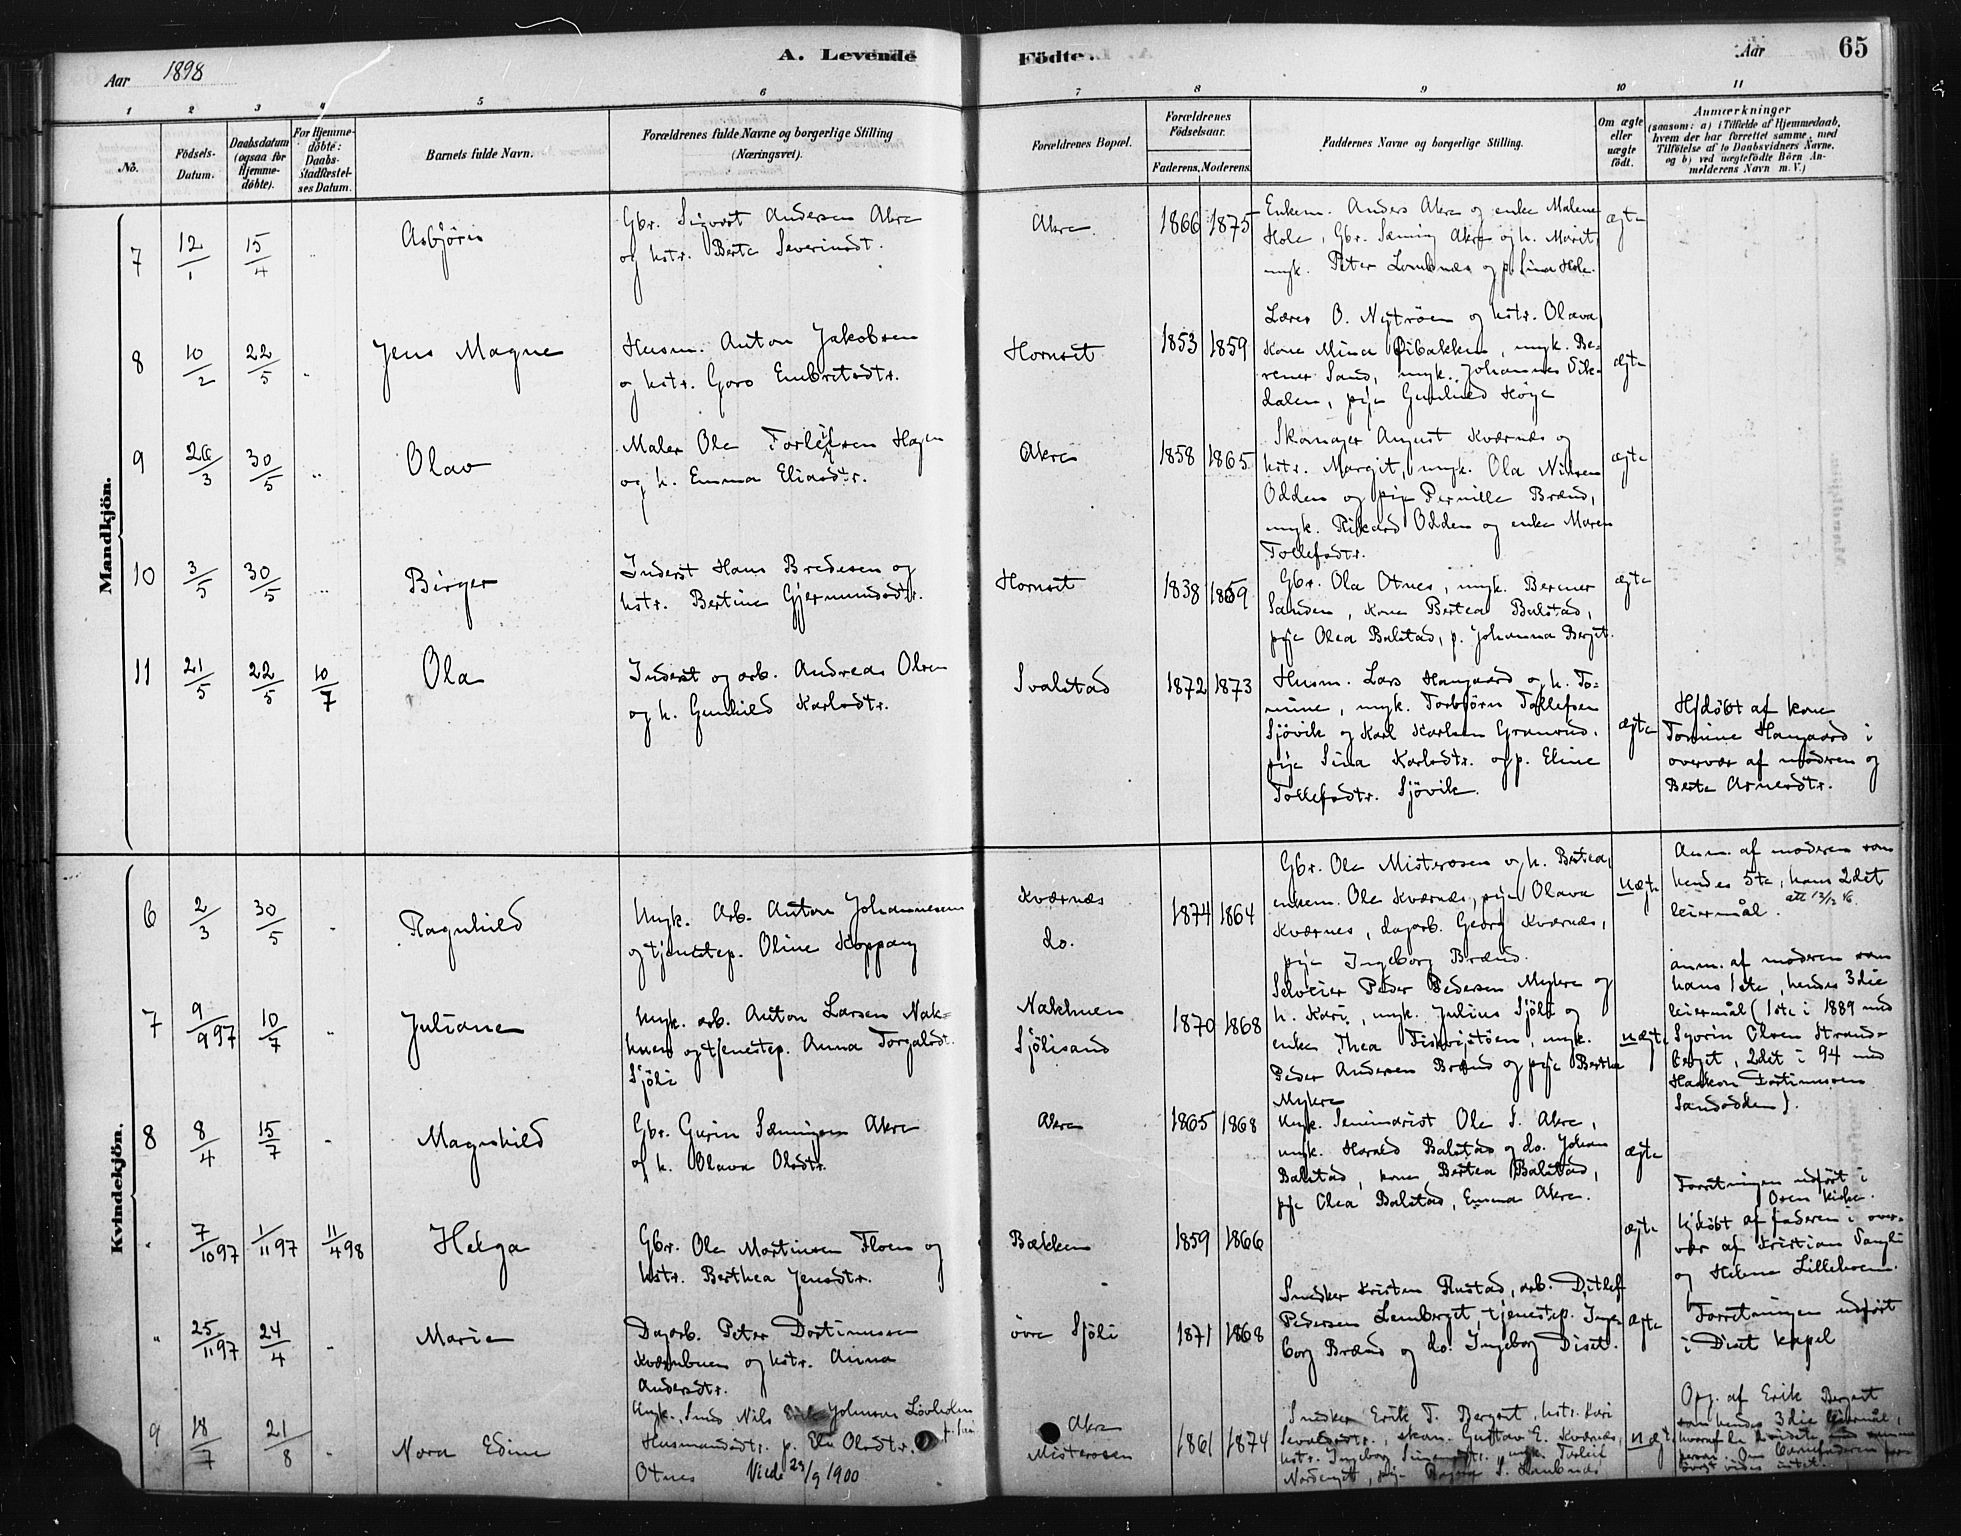 Aar 1898
A. Levende
Födte.
Aar
65
1 2 3 4 5 6 7 8 9 10 11
No.
Födsels-Datum.
Daabsdatum (ogsaa for Hjemme-döbte).
For Hjemme-döbte: Daabs-Stadfæstel-ses Datum.
Barnets fulde Navn.
Forældrenes fulde Navne og borgerlige Stilling (Næringsvei).
Forældrenes Bopæl.
Forældrenes Födselsaar.
Faderens. Moderens.
Faddernes Navne og borgerlige Stilling.
Om ægte eller uægte födt.
Anmærkninger
(saasom: a) i Tilfælde af Hjemmedaab, hvem der har forrettet samme, med Tilföielse af to Daabsvidners Navne, og b) ved uægtefödte Börn An-melderens Navn m. V.)
Mandkjön.
7 12/1 15/4 Asbjörn
Gbr. Sigvart Andersen Akre
og hstr. Berte Severinsdt.
Akre 1866 1875
Enkem. Anders Akre og enke Malene
Hole, Gbr. Sæming Akre og h. Marit,
ungk. Peter Lombnæs og p. Sina Hole.
ægte
8 10/2 22/5 Jens Magne
Husm. Anton Jakobsen
og hstr. Goro Embretsdtr.
Hornset 1853 1859
Lærer O. Nytröen og hstr. Olava,
Kone Mina Öibakken, ungk. Be-
rener Sand, ungk. Johannes Vik-
dalen, pige Gunhild Höye
ægte
9 26/3 30/5 Olav
Maler Ole Torleifsen Hagen
og h. Emma Eliasdtr.
Akre 1858 1865
Skomager August Kværnæs og
hstr. Margit, ungk. Ola Nilsen
Odden og pige Pernille Brænd,
ungk. Rikard Odden og enke Maren
Tollefsdtr.
ægte
10 3/5 30/5 Birger
Inderst Hans Bredesen og
hstr. Bertine Gjermundsdtr.
Hornset 1838 1859
Gbr. Ola Otnes, ungk. Berner
Sanden, kone Bertea Balstad,
pige Olea Balstad, p. Johanna Berget.
ægte
11 21/5 22/5 10/7 Ola
Inderst og arb. Andreas Olsen
og h. Gunhild Karlsdtr.
Svalstad 1872 1873
Husm. Lars Haugaard og h. To-
mine, ungk. Torbjörn Tollefsen
Sjövik og Karl Karlsen Granrud.
pige Sina Karlsdtr. og p. Eline
Tollefsdtr. Sjövik.
ægte
Hjdöbt af kone
Tomine Haugaard i
overvær af modren og
Berte Arnesdtr.
Kvindekjön.
6 2/3 30/5 Ragnhild
Ungk. Arb. Anton Johannesen
og tjenestep. Oline Koppang
Kværnæs
do.
1874 1864
Gbr. Ole Misterosen og h. Bertea,
enkem. Ole Kværnæs, pige Olava
Kværnes, dagarb. Georg Kværnes,
pige Ingeborg Brænd.
uægte
Anm. af moderen som
hendes 5te, hans 2det
leiermål.
7 9/9 97 10/7 Juliane
Ungk. arb. Anton Larsen Nak-
huen og tjenestep. Anna Torgalsdt.
Sjöli
Nakhuen
Sjölisand
1870 1868
Selveier Peder Pedersen Myhre og
h. Kari, ungk. Julius Sjöli og
enke Thea Fiskvigtöen, ungk.
Peder Andersen Brænd og pige Berthe
Myhre
uægte
anm. af moderen som
hans 1ste, hendes 3die
leiermål (1ste i 1889 med
Syverin Olsen Strand-
berget, 2det i 94 med
Haakon Fortinussen
Sandodden).
8 8/4 15/7 Magnhild
Gbr. Gurin Sæmingsen Akre
og h. Olava Olsdtr.
Akre 1865 1868
Ungk. Seminarist Ole S. Akre,
ungk. Harald Balstad og do. Johan
Balstad, kone Bertea Balstad,
pige Olea Balstad, Emma Akre.
ægte
Forretningen udfört i
Oren Kirke.
" 7/10 97 1/11 97 11/4 98 Helga
Gbr. Ole Martinsen Floen og
hstr. Berthea Jensdtr.
Bækken 1859 1866
ægte
Hjdöbt af faderen i over-
vær af Kristian Sangli
og Helene Lillehoem.
" 25/11 97 24/4 Marie
Dagarb. Peter Dortinussen
Kværnbuen og hstr. Anna
Andersdtr.
övre Sjöli 1871 1868
Snedker Kristen Rustad, arb. Ditlef
Pedersen Lemberget, tjenestep. Inge-
borg Brænd og do. Ingeborg Diset.
ægte
Forretningen udfört
i Diset kapel
9 18/7 21/8 Nora Edine
Ungk. Smed Nils Erik Johnsen Lövholm
Husmandsdtr. p. Eli Olsdtr.
Otnes Viede 29/9 1900
Akre
Misterosen
1861 1874
Snedker Erik T. Berget, hstr. Kari
Sevaldsdtr., skom. Gustav E. Kværnes,
hstr. Ingeborg Simensdtr. ungk. Torleif
uægt.
Opg. af Erik Berget
som hendes 3die leiermål,